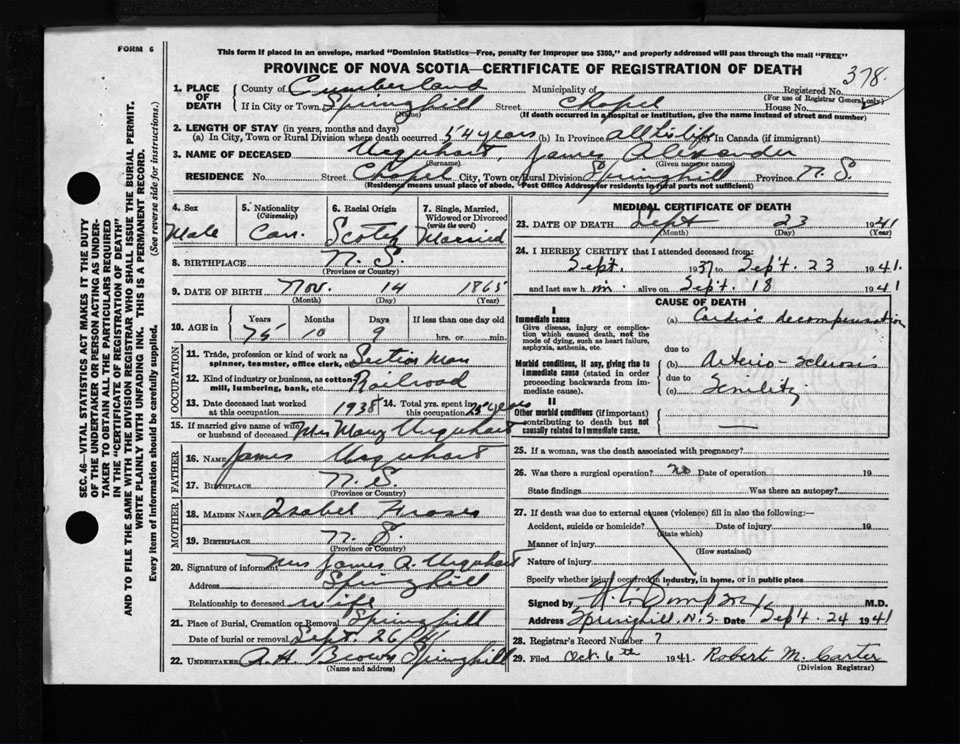 FORM 6
This form if placed in an envelope, marked "Dominion Statistics—Free, penalty for improper use $300," and properly addressed will pass through the mail "FREE"
PROVINCE OF NOVA SCOTIA—CERTIFICATE OF REGISTRATION OF DEATH
378
SEC. 46—VITAL STATISTICS ACT MAKES IT THE DUTY OF THE UNDERTAKER OR PERSON ACTING AS UNDERTAKER TO OBTAIN ALL THE PARTICULARS REQUIRED IN THE "CERTIFICATE OF REGISTRATION OF DEATH"
AND TO FILE THE SAME WITH THE DIVISION REGISTRAR WHO SHALL ISSUE THE BURIAL PERMIT.
WRITE PLAINLY WITH UNFADING INK. THIS IS A PERMANENT RECORD.
Every item of information should be carefully supplied. (See reverse side for instructions.)
1. PLACE OF DEATH
County of Cumberland Municipality of Registered No.
(For use of Registrar General only)
If in City or Town Springhill Street Chapel House No.
(Name) (If death occurred in a hospital or institution, give the name instead of street and number)
2. LENGTH OF STAY (in years, months and days)
(a) In City, Town or Rural Division where death occurred 54 years (b) In Province all his life In Canada (if immigrant)
3. NAME OF DECEASED Urquhart, James Alexander
(Surname) (Given name or names)
RESIDENCE No. Street Chapel City, Town or Rural Division Springhill Province N.S.
(Residence means usual place of abode. Post Office Address for residents in rural parts not sufficient)
4. Sex Male
5. Nationality (Citizenship) Can.
6. Racial Origin Scotch
7. Single, Married, Widowed or Divorced (write the word) Married
8. BIRTHPLACE N.S.
(Province or Country)
9. DATE OF BIRTH Nov. 14 1865
(Month) (Day) (Year)
10. AGE in Years Months Days If less than one day old
75 10 9 hrs. or min.
OCCUPATION
11. Trade, profession or kind of work as spinner, teamster, office clerk, etc. Section Man
12. Kind of industry or business, as cotton mill, lumbering, bank, etc. Railroad
13. Date deceased last worked at this occupation 1938 14. Total yrs. spent in this occupation 25 years
15. If married give name of wife or husband of deceased Mrs Mary Urquhart
FATHER
16. Name James Urquhart
17. Birthplace N.S.
(Province or Country)
MOTHER
18. Maiden Name Isabel Fraser
19. Birthplace N.S.
(Province or Country)
20. Signature of informant Mrs James A. Urquhart
Address Springhill
Relationship to deceased wife
21. Place of Burial, Cremation or Removal Springhill
Date of burial or removal Sept. 26/41
22. Undertaker A.H. Brown Springhill
(Name and address)
MEDICAL CERTIFICATE OF DEATH
23. DATE OF DEATH Sept 23 1941
(Month) (Day) (Year)
24. I HEREBY CERTIFY that I attended deceased from:
Sept. 1937 to Sept. 23 1941.
and last saw him alive on Sept. 18 1941
CAUSE OF DEATH
I
Immediate cause
Give disease, injury or complication which caused death, not the mode of dying, such as heart failure, asphyxia, asthenia, etc.
(a) Cardiac decompensation
due to
Morbid conditions, if any, giving rise to immediate cause (stated in order proceeding backwards from immediate cause).
(b) Arterio-sclerosis
due to
(c) Senility
II
Other morbid conditions (if important) contributing to death but not causally related to immediate cause.
25. If a woman, was the death associated with pregnancy?
26. Was there a surgical operation? no Date of operation 19
State findings Was there an autopsy?
27. If death was due to external causes (violence) fill in also the following:—
Accident, suicide or homicide? Date of injury 19
(State which)
Manner of injury
(How sustained)
Nature of injury
Specify whether injury occurred in industry, in home, or in public place
Signed by M.D.
Address Springhill, N.S. Date Sept. 24 1941
28. Registrar's Record Number 7
29. Filed Oct. 6th 1941. Robert M. Carter
(Division Registrar)